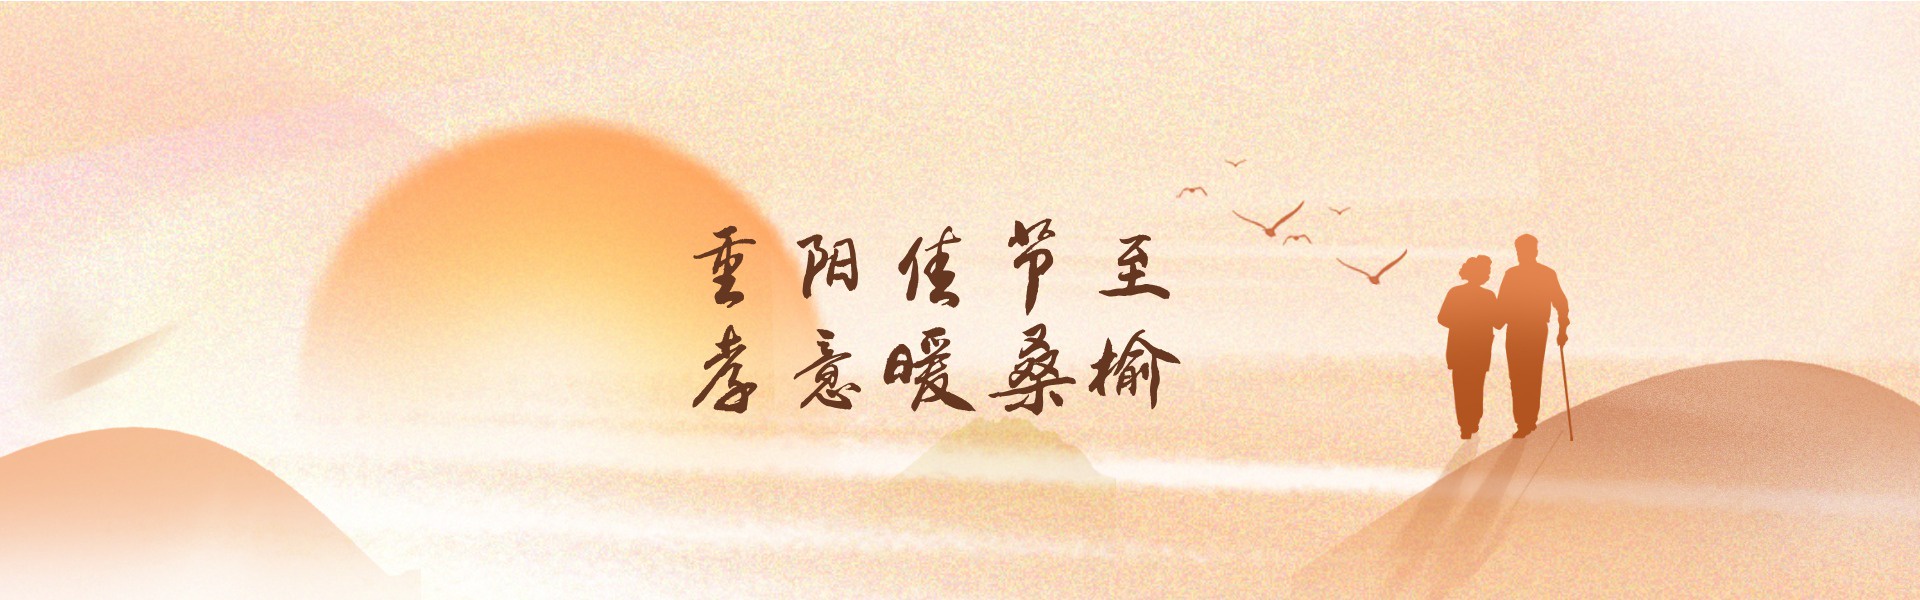 重阳佳节至
孝意暖桑榆